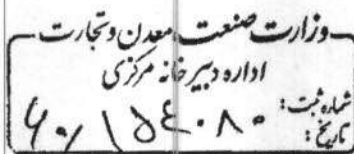 وزارت صنعت، معدن و تجارت
اداره دبیرخانه مرکزی
شماره ثبت: ۶۰/۱۵۴۰۸۰
تاریخ: